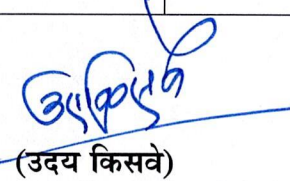 (उदय किसवे)